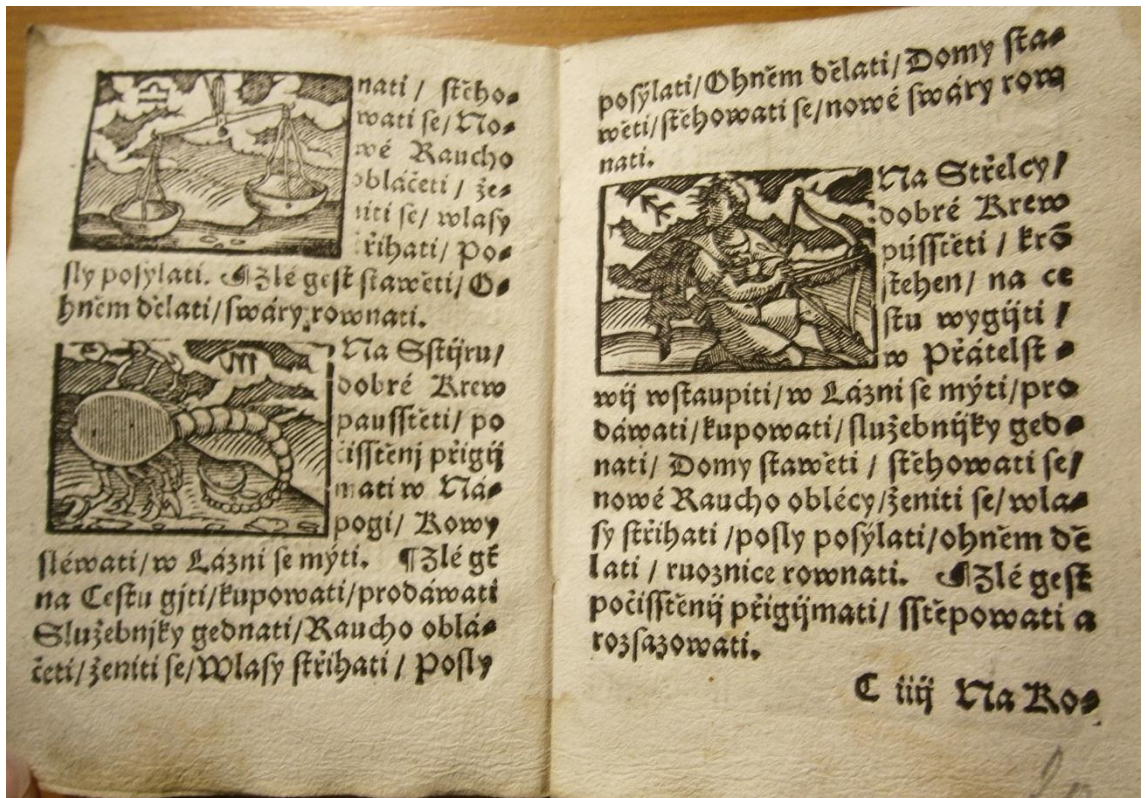 nati / stěho⸗
wati se / No⸗
wé Raucho
obláčeti / že⸗
niti se / wlasy
střihati / Po⸗
sly posýlati. ¶ Zlé gest stawěti / O⸗
hněm dělati / swáry rownati.
Na Sstijru /
dobré Krew
pausstěti / po
čisstěnj přigij
mati w Ná⸗
pogi / Kowy
sléwati / w Lázni se mýti. ¶ Zlé gt
na Cestu gjti / kupowati / prodáwati
Služebnjky gednati / Raucho oblá⸗
četi / ženiti se / Wlasy střihati / Posly
posýlati / Ohněm dělati / Domy sta⸗
wěti / stěhowati se / nowé swáry row
nati.
Na Střelcy /
dobré Krew
pússtěti / krō
stehen / na ce
stu wygijti /
w Přátelst⸗
wij wstaupiti / w Lázni se mýti / pro
dáwati / kupowati / služebnijky ged⸗
nati / Domy stawěti / stěhowati se /
nowé Raucho oblécy / ženiti se / wla⸗
sy střihati / posly posýlati / ohněm dě
lati / ruoznice rownati. ¶ Zlé gest
počisstěnij přigijmati / sstěpowati a
rozsazowati.
C iiij Na Ko⸗